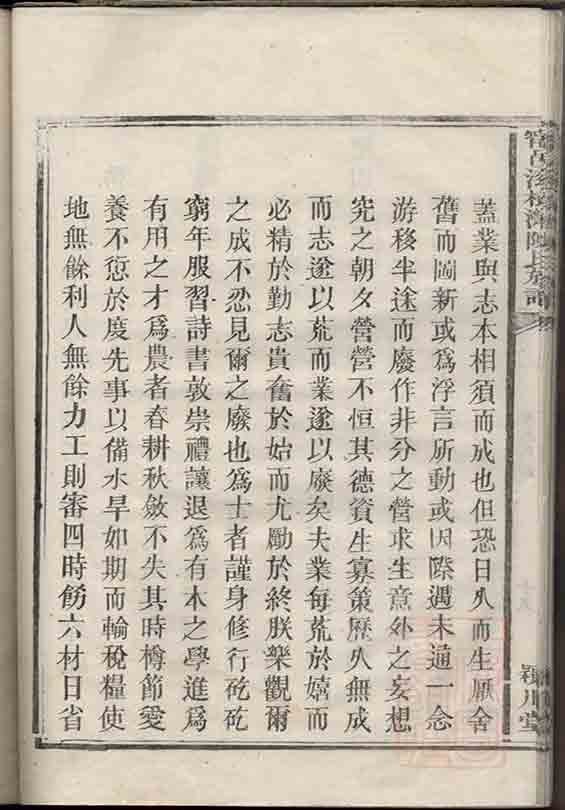 陳氏族譜
潁川堂
蓋業與志本相須而成也但恐日久而生厭舍
舊而圖新或爲浮言所動或因際遇未通一念
游移半途而廢作非分之營求生意外之妄想
究之朝夕營營不恒其德資生寡策歷久無成
而志遂以荒而業遂以廢矣夫業每荒於嬉而
必精於勤志貴奮於始而尤勵於終朕樂觀爾
之成不忍見爾之廢也爲士者謹身修行矻矻
窮年服習詩書敦崇禮讓退爲有本之學進爲
有用之才爲農者春耕秋斂不失其時樽節愛
養不愆於度先事以備水旱如期而輸稅糧使
地無餘利人無餘力工則審四時飭六材日省